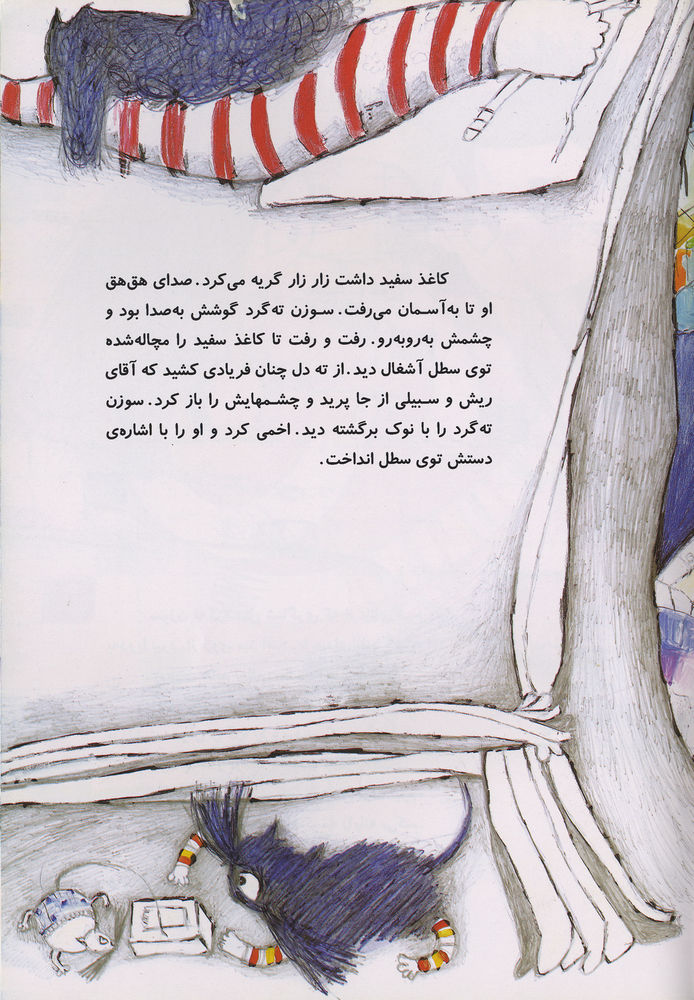 کاغذ سفید داشت زار زار گریه می‌کرد. صدای هق‌هق
او تا به‌آسمان می‌رفت. سوزن ته‌گرد گوشش به‌صدا بود و
چشمش به‌روبه‌رو. رفت و رفت تا کاغذ سفید را مچاله‌شده
توی سطل آشغال دید. از ته دل چنان فریادی کشید که آقای
ریش و سبیلی از جا پرید و چشمهایش را باز کرد. سوزن
ته‌گرد را با نوک برگشته دید. اخمی کرد و او را با اشاره‌ی
دستش توی سطل انداخت.